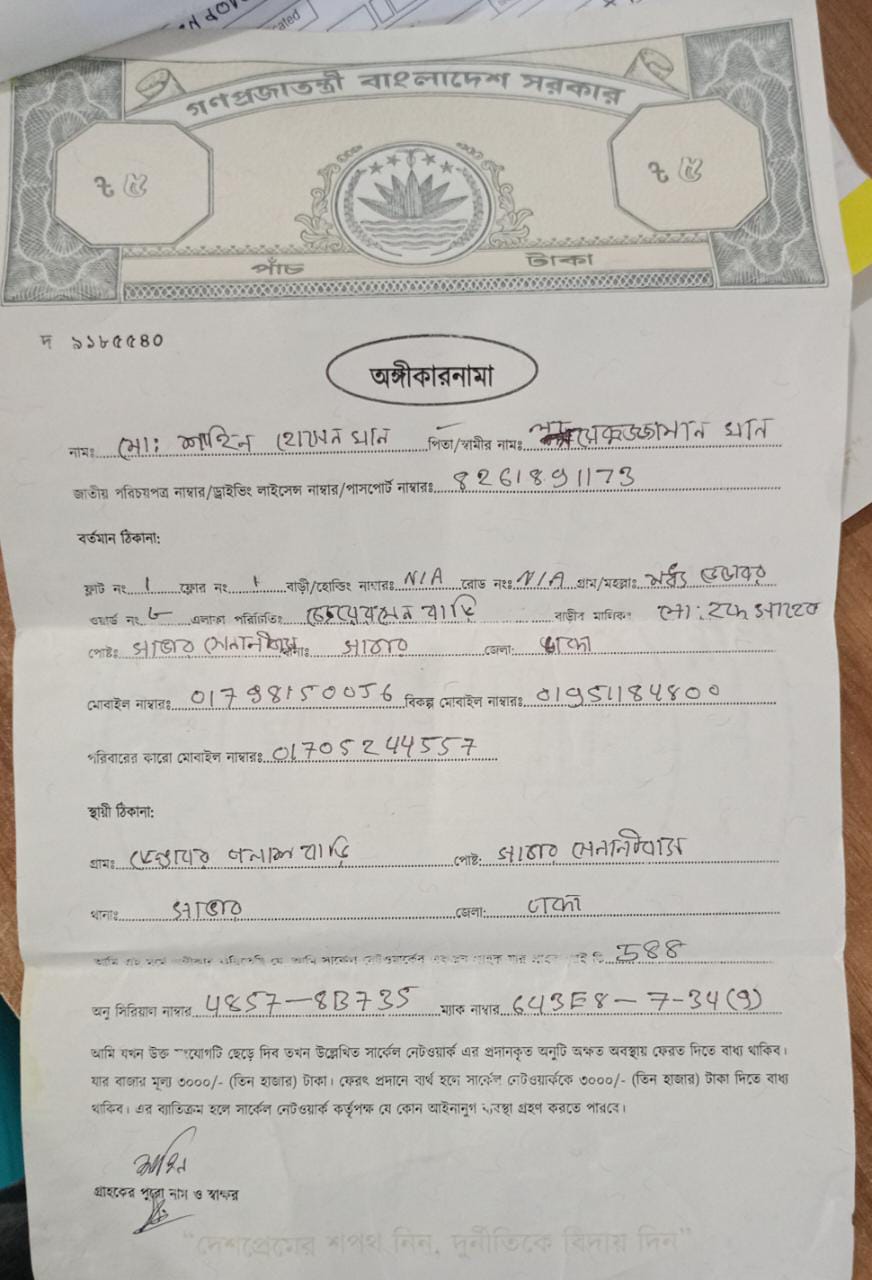 ated
গণপ্রজাতন্ত্রী বাংলাদেশ সরকার
৳ ৫ ৳ ৫
পাঁচ টাকা
দ ৯১৮৫৫৪০
অঙ্গীকারনামা
নামঃ মো: শাহিন হোসেন খান পিতা/স্বামীর নাম: খান
জাতীয় পরিচয়পত্র নাম্বার/ড্রাইভিং লাইসেন্স নাম্বার/পাসপোর্ট নাম্বারঃ 8261891173
বর্তমান ঠিকানা:
ফ্লাট নং 1 ফ্লোর নং 1 বাড়ী/হোল্ডিং নাম্বারঃ N/A রোড নংঃ N/A গ্রাম/মহল্লাঃ
ওয়ার্ড নং ৮ এলাকা পরিচিতিঃ বাড়ি বাড়ীর মালিকঃ মো: হক সাহেব
পোষ্টঃ সাভার সেনানীবাস থানাঃ সাভার জেলা: ঢাকা
মোবাইল নাম্বারঃ 01798150056 বিকল্প মোবাইল নাম্বারঃ 01951184800
পরিবারের কারো মোবাইল নাম্বারঃ 01705244557
স্থায়ী ঠিকানা:
গ্রামঃ বাড়ি পোষ্ট: সাভার সেনানিবাস
থানাঃ সাভার জেলা: ঢাকা
আমি এই মর্মে যে আমি সার্কেল নেটওয়ার্কের একজন গ্রাহক যার গ্রাহক আই ডি 588
অনু সিরিয়াল নাম্বার 4857-8B735 ম্যাক নাম্বার 643E8-7-34(9)
আমি যখন উক্ত সংযোগটি ছেড়ে দিব তখন উল্লেখিত সার্কেল নেটওয়ার্ক এর প্রদানকৃত অনুটি অক্ষত অবস্থায় ফেরত দিতে বাধ্য থাকিব।
যার বাজার মূল্য ৩০০০/- (তিন হাজার) টাকা। ফেরৎ প্রদানে ব্যর্থ হলে সার্কেল নেটওয়ার্ককে ৩০০০/- (তিন হাজার) টাকা দিতে বাধ্য
থাকিব। এর ব্যতিক্রম হলে সার্কেল নেটওয়ার্ক কর্তৃপক্ষ যে কোন আইনানুগ ব্যবস্থা গ্রহণ করতে পারবে।
শাহিন
গ্রাহকের পুরো নাম ও স্বাক্ষর
"দেশপ্রেমের শপথ নিন, দুর্নীতিকে বিদায় দিন"